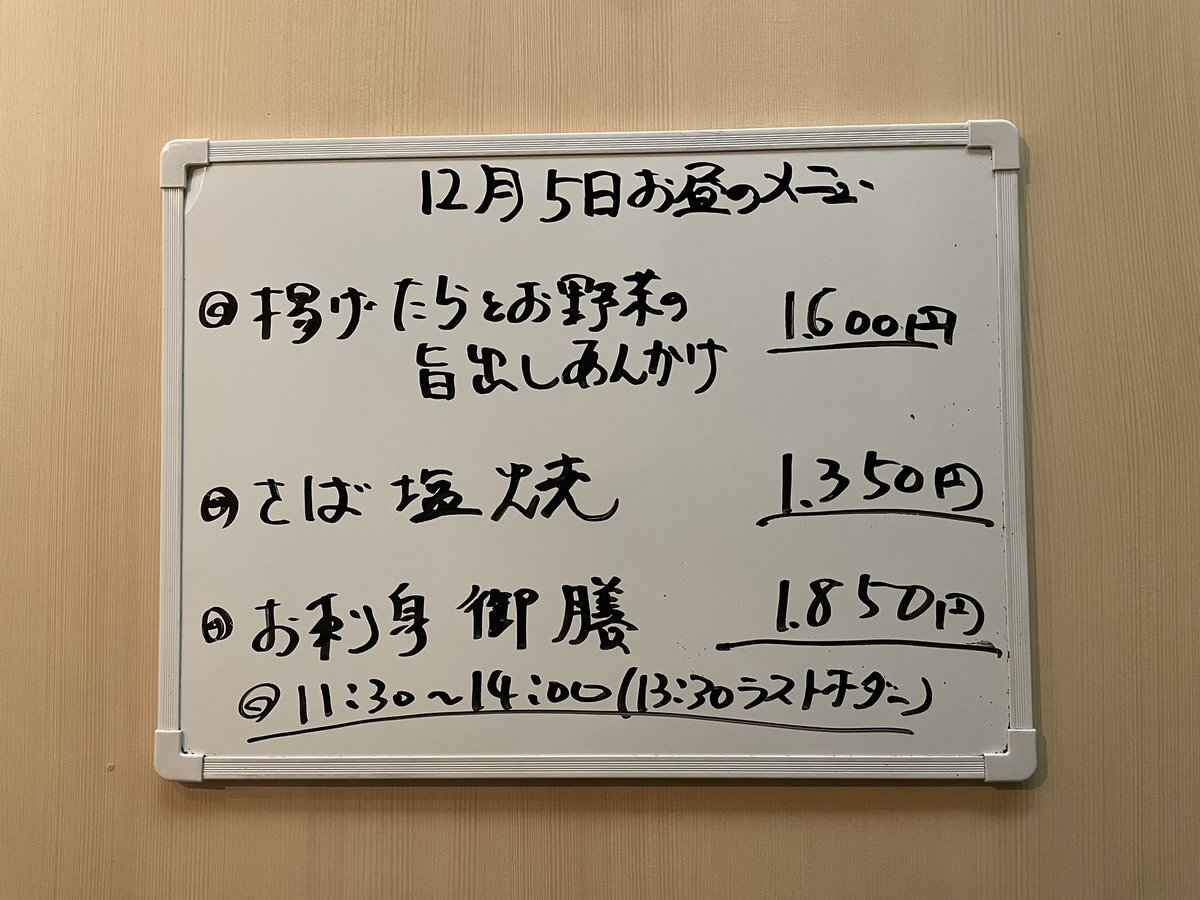 12月5日お昼のメニュー
◎揚げたらとお野菜の 1.600円
旨出しあんかけ
◎さば塩焼 1.350円
◎お刺身御膳 1.850円
◎11:30~14:00(13:30ラストオーダー)